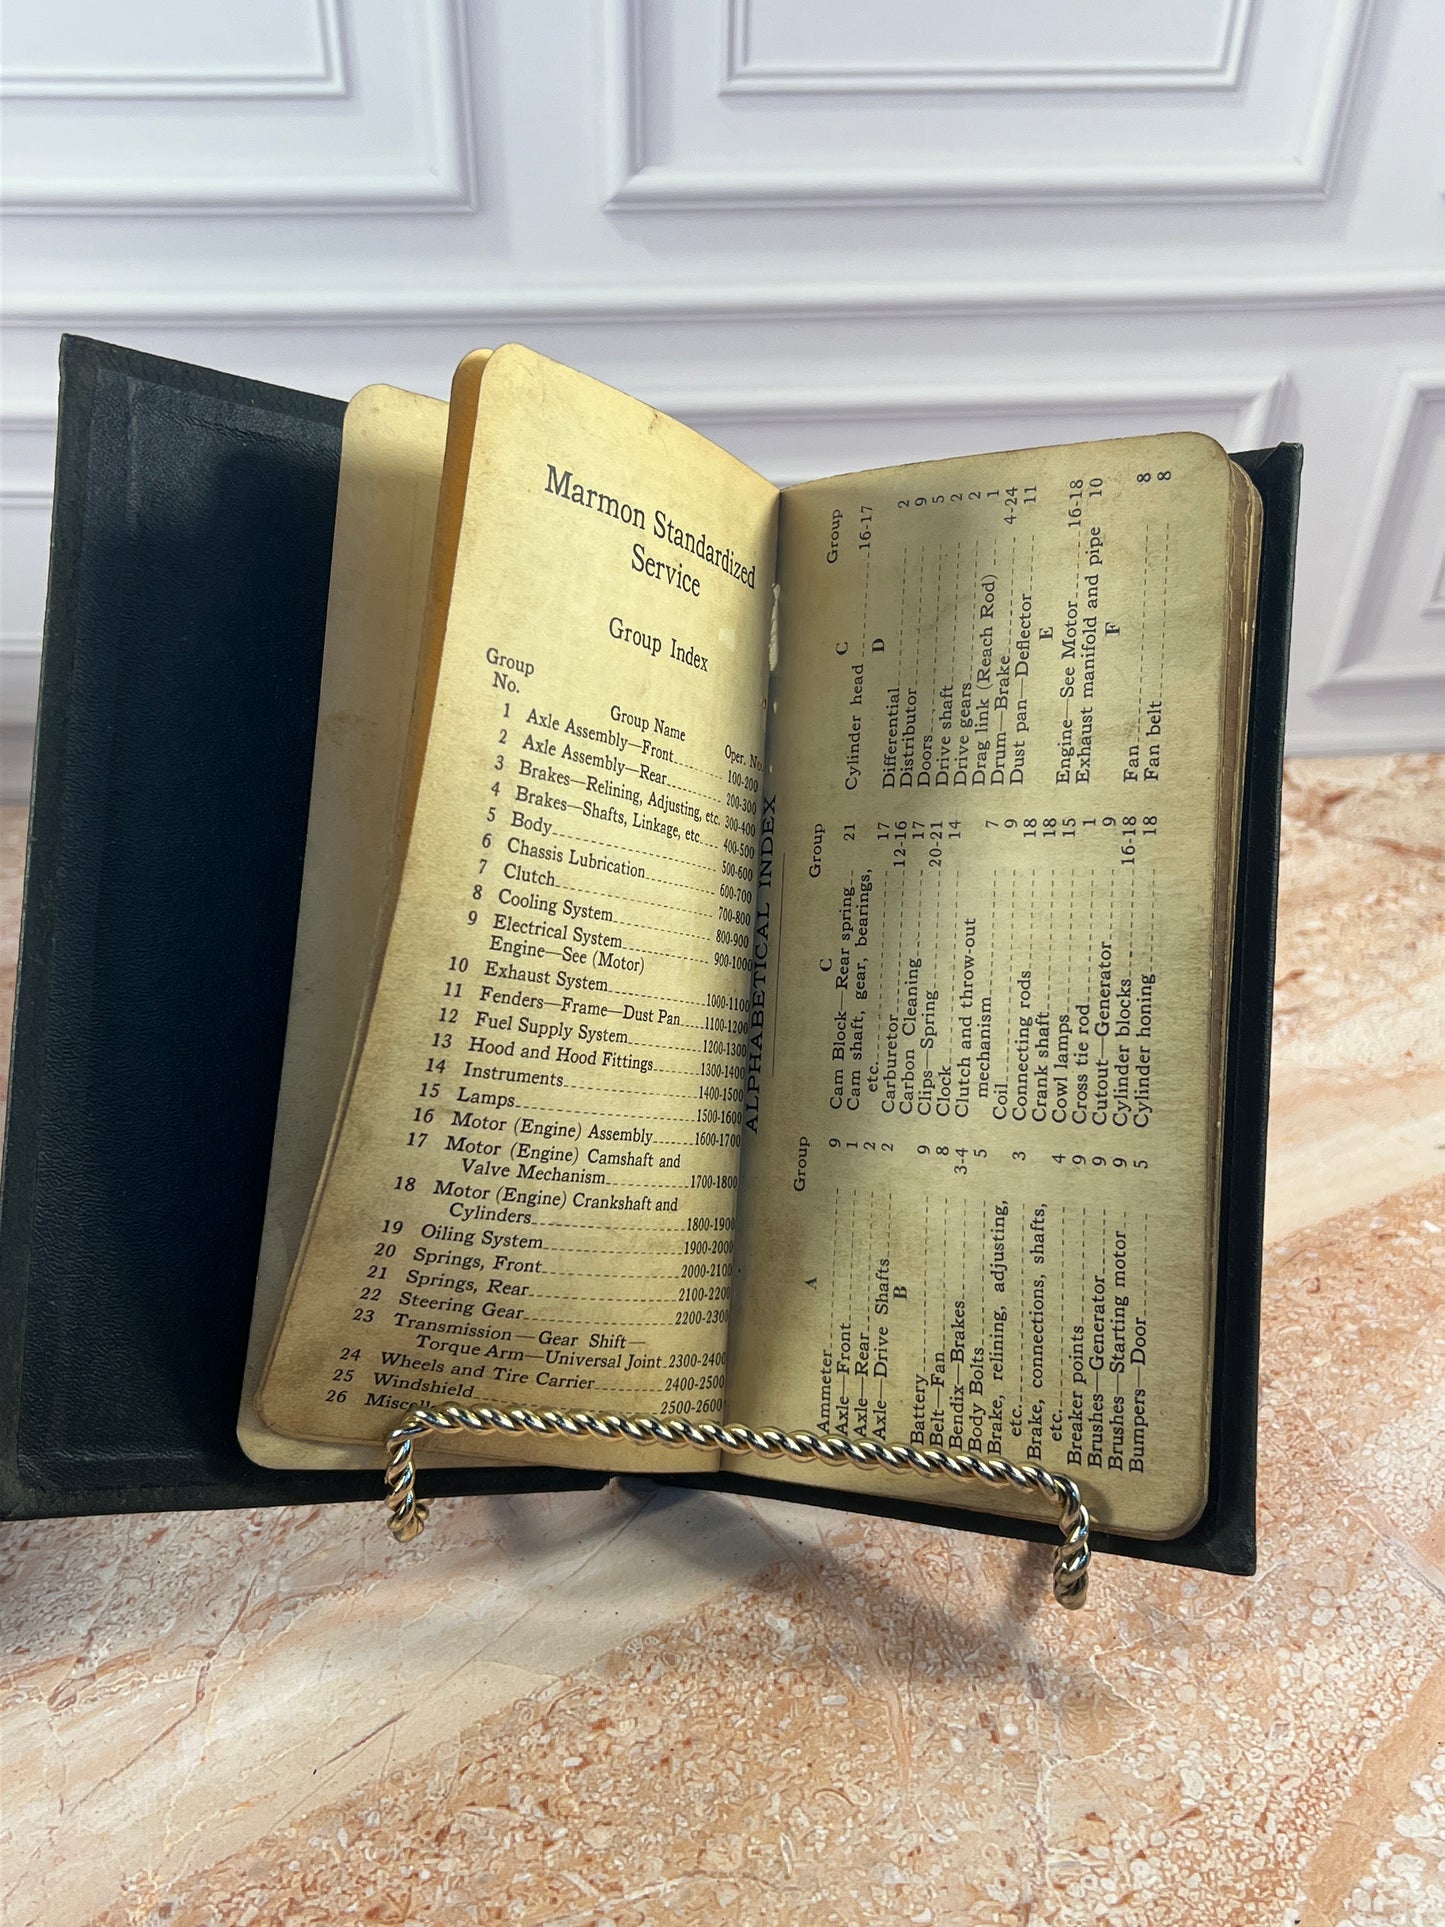 Marmon Standardized
Service
Group Index
Group
No. Group Name Oper. No.
1 Axle Assembly—Front 100-200
2 Axle Assembly—Rear 200-300
3 Brakes—Relining, Adjusting, etc. 300-400
4 Brakes—Shafts, Linkage, etc. 400-500
5 Body 500-600
6 Chassis Lubrication 600-700
7 Clutch 700-800
8 Cooling System 800-900
9 Electrical System 900-1000
Engine—See (Motor)
10 Exhaust System 1000-1100
11 Fenders—Frame—Dust Pan 1100-1200
12 Fuel Supply System 1200-1300
13 Hood and Hood Fittings 1300-1400
14 Instruments 1400-1500
15 Lamps 1500-1600
16 Motor (Engine) Assembly 1600-1700
17 Motor (Engine) Camshaft and
Valve Mechanism 1700-1800
18 Motor (Engine) Crankshaft and
Cylinders 1800-1900
19 Oiling System 1900-2000
20 Springs, Front 2000-2100
21 Springs, Rear 2100-2200
22 Steering Gear 2200-2300
23 Transmission—Gear Shift—
Torque Arm—Universal Joint 2300-2400
24 Wheels and Tire Carrier 2400-2500
25 Windshield 2500-2600
26
ALPHABETICAL INDEX
Group
A
Ammeter 9
Axle—Front 1
Axle—Rear 2
Axle—Drive Shafts 2
B
Battery 9
Belt—Fan 8
Bendix—Brakes 3-4
Body Bolts 5
Brake, relining, adjusting,
etc. 3
Brake, connections, shafts,
etc. 4
Breaker points 9
Brushes—Generator 9
Brushes—Starting motor 9
Bumpers—Door 5
Group
C
Cam Block—Rear spring 21
Cam shaft, gear, bearings,
etc. 17
Carburetor 12-16
Carbon Cleaning 17
Clips—Spring 20-21
Clock 14
Clutch and throw-out
mechanism 7
Coil 9
Connecting rods 18
Crank shaft 18
Cowl lamps 15
Cross tie rod 1
Cutout—Generator 9
Cylinder blocks 16-18
Cylinder honing 18
Group
C
Cylinder head 16-17
D
Differential 2
Distributor 9
Doors 5
Drive shaft 2
Drive gears 2
Drag link (Reach Rod) 1
Drum—Brake 4-24
Dust pan—Deflector 11
E
Engine—See Motor 16-18
Exhaust manifold and pipe 10
F
Fan 8
Fan belt 8